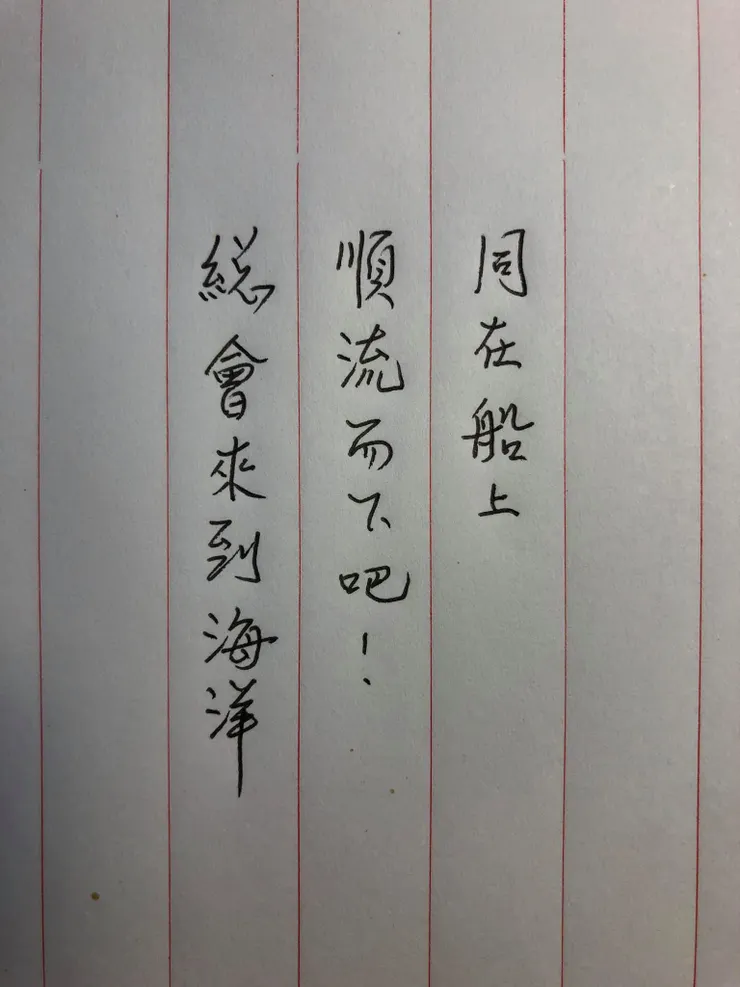 同在船上
順流而下吧！
総會來到海洋